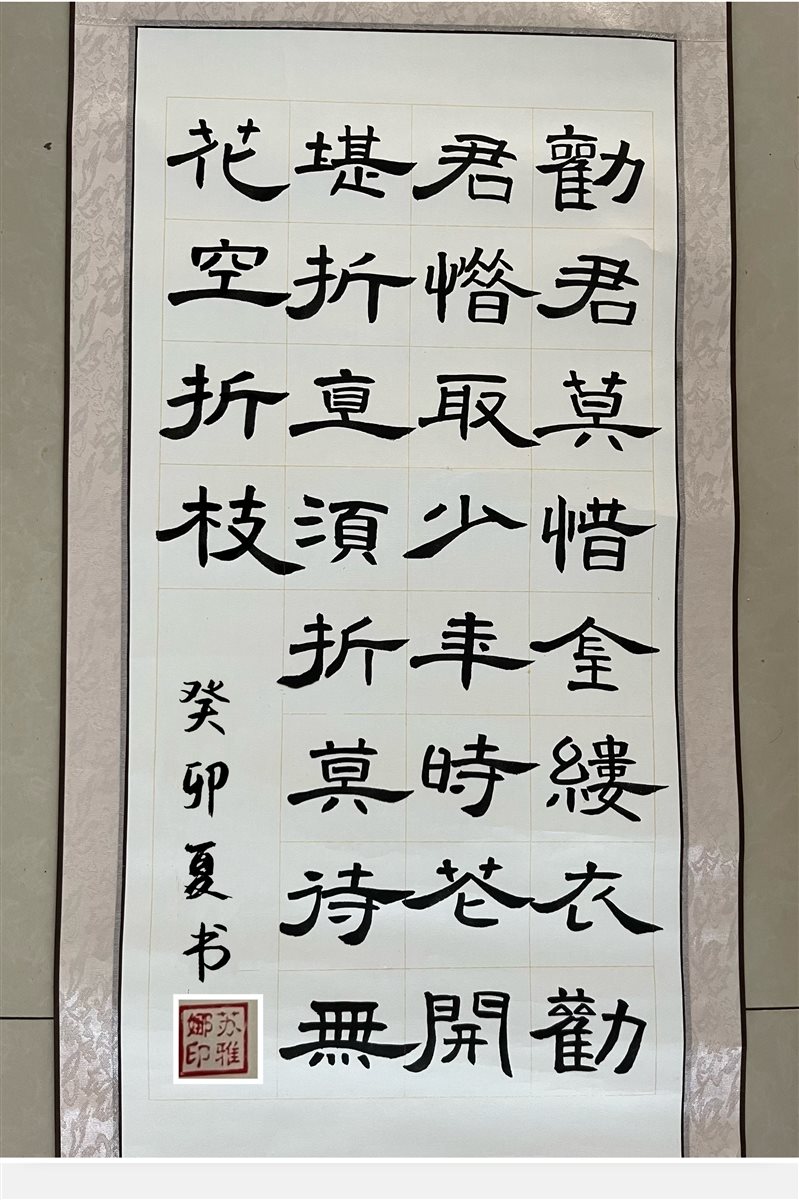 勸君莫惜金縷衣勸
君惜取少年時花開
堪折直須折莫待無
花空折枝
癸卯夏书
苏雅
娜印